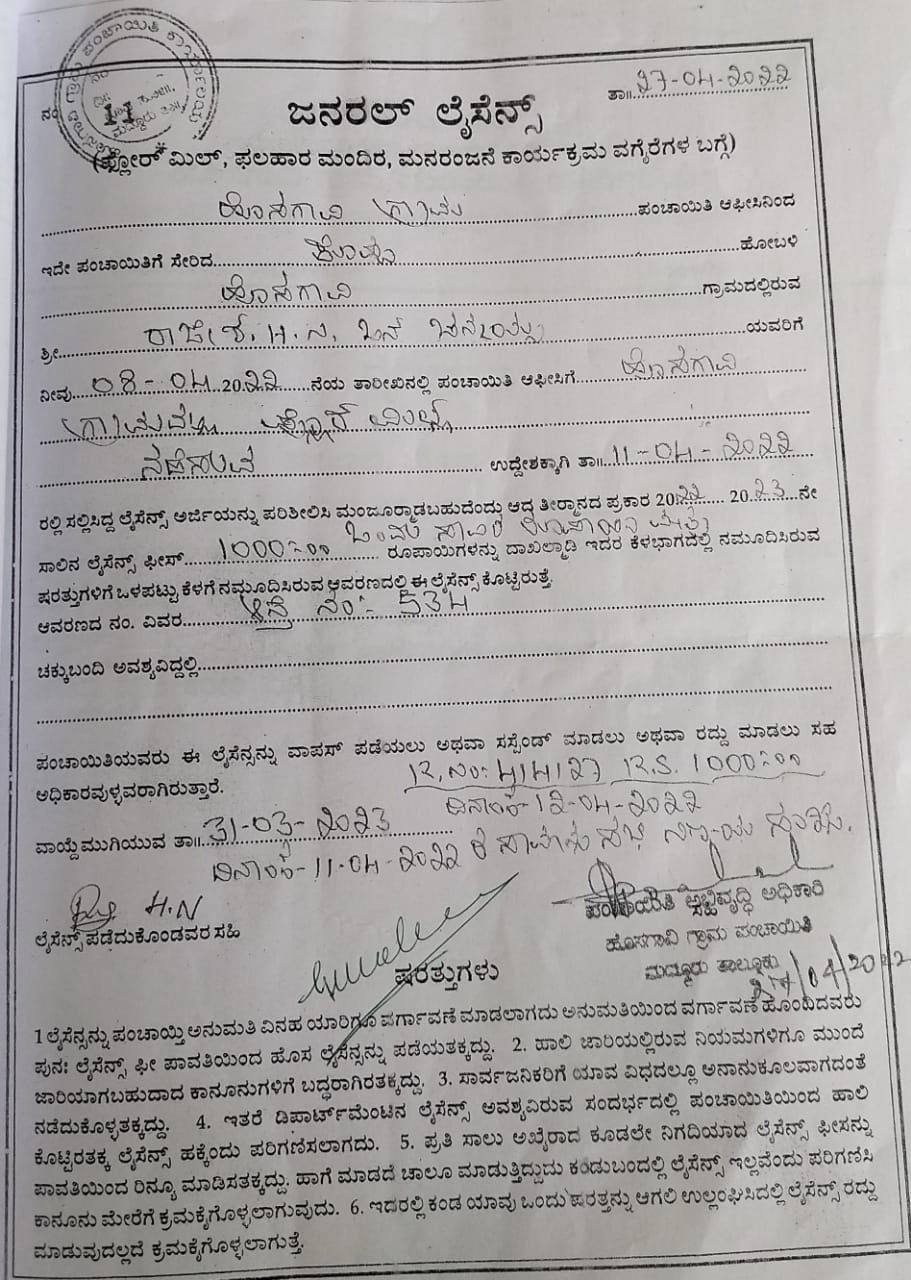 ನಂ 11
ತಾ॥ 27-04-2022
ಜನರಲ್ ಲೈಸೆನ್ಸ್
(ಫ್ಲೋರ್ ಮಿಲ್, ಫಲಹಾರ ಮಂದಿರ, ಮನರಂಜನೆ ಕಾರ್ಯಕ್ರಮ ವಗೈರೆಗಳ ಬಗ್ಗೆ)
ಹೊಸಗಾವಿ ಗ್ರಾಮ ಪಂಚಾಯಿತಿ ಆಫೀಸಿನಿಂದ
ಇದೇ ಪಂಚಾಯಿತಿಗೆ ಸೇರಿದ ಕೊಪ್ಪ ಹೋಬಳಿ
ಹೊಸಗಾವಿ ಗ್ರಾಮದಲ್ಲಿರುವ
ಶ್ರೀ ರಾಜೇಶ. H.ನ. ಬಿನ್ ಯವರಿಗೆ
ನೀವು 08-04 2022 ನೆಯ ತಾರೀಖಿನಲ್ಲಿ ಪಂಚಾಯಿತಿ ಆಫೀಸಿಗೆ ಹೊಸಗಾವಿ
ಗ್ರಾಮದಲ್ಲಿ ಫ್ಲೋರ್ ಮಿಲ್ಲ್
ನಡೆಸಲು ಉದ್ದೇಶಕ್ಕಾಗಿ ತಾ॥ 11-04-2022
ರಲ್ಲಿ ಸಲ್ಲಿಸಿದ್ದ ಲೈಸೆನ್ಸ್ ಅರ್ಜಿಯನ್ನು ಪರಿಶೀಲಿಸಿ ಮಂಜೂರ್ಮಾಡಬಹುದೆಂದು ಆದ ತೀರ್ಮಾನದ ಪ್ರಕಾರ 2022 2023 ನೇ
ಒಂದು ಸಾವಿರ ರೂಪಾಯಿ ಮಾತ್ರ
ಸಾಲಿನ ಲೈಸೆನ್ಸ್ ಫೀಸ್ 1000=00 ರೂಪಾಯಿಗಳನ್ನು ದಾಖಲ್ಮಾಡಿ ಇದರ ಕೆಳಭಾಗದಲ್ಲಿ ನಮೂದಿಸಿರುವ
ಷರತ್ತುಗಳಿಗೆ ಒಳಪಟ್ಟು ಕೆಳಗೆ ನಮೂದಿಸಿರುವ ಆವರಣದಲ್ಲಿ ಈ ಲೈಸೆನ್ಸ್ ಕೊಟ್ಟಿರುತ್ತೆ.
ಆವರಣದ ನಂ. ವಿವರ ಆಸ್ತಿ ನಂ:- 534
ಚಕ್ಕುಬಂದಿ ಅವಶ್ಯವಿದ್ದಲ್ಲಿ
ಪಂಚಾಯಿತಿಯವರು ಈ ಲೈಸೆನ್ಸನ್ನು ವಾಪಸ್ ಪಡೆಯಲು ಅಥವಾ ಸಸ್ಪೆಂಡ್ ಮಾಡಲು ಅಥವಾ ರದ್ದು ಮಾಡಲು ಸಹ
ಅಧಿಕಾರವುಳ್ಳವರಾಗಿರುತ್ತಾರೆ.
R.No: 414127 R.S. 1000=00
ದಿನಾಂಕ-12-04-2022
ವಾಯ್ದೆ ಮುಗಿಯುವ ತಾ॥ 31-03-2023
ದಿನಾಂಕ-11-04-2022 ರ ಸಾಮಾನ್ಯ ಸಭೆ
H.N
ಲೈಸೆನ್ಸ್ ಪಡೆದುಕೊಂಡವರ ಸಹಿ
ಪಂಚಾಯಿತಿ ಅಭಿವೃದ್ಧಿ ಅಧಿಕಾರಿ
ಹೊಸಗಾವಿ ಗ್ರಾಮ ಪಂಚಾಯಿತಿ
ಮದ್ದೂರು ತಾಲ್ಲೂಕು
27/04/2022
ಷರತ್ತುಗಳು
1 ಲೈಸೆನ್ಸನ್ನು ಪಂಚಾಯ್ತಿ ಅನುಮತಿ ವಿನಹ ಯಾರಿಗೂ ವರ್ಗಾವಣೆ ಮಾಡಲಾಗದು ಅನುಮತಿಯಿಂದ ವರ್ಗಾವಣೆ ಹೊಂದಿದವರು
ಪುನಃ ಲೈಸೆನ್ಸ್ ಫೀ ಪಾವತಿಯಿಂದ ಹೊಸ ಲೈಸೆನ್ಸನ್ನು ಪಡೆಯತಕ್ಕದ್ದು. 2. ಹಾಲಿ ಜಾರಿಯಲ್ಲಿರುವ ನಿಯಮಗಳಿಗೂ ಮುಂದೆ
ಜಾರಿಯಾಗಬಹುದಾದ ಕಾನೂನುಗಳಿಗೆ ಬದ್ಧರಾಗಿರತಕ್ಕದ್ದು. 3. ಸಾರ್ವಜನಿಕರಿಗೆ ಯಾವ ವಿಧದಲ್ಲೂ ಅನಾನುಕೂಲವಾಗದಂತೆ
ನಡೆದುಕೊಳ್ಳತಕ್ಕದ್ದು. 4. ಇತರೆ ಡಿಪಾರ್ಟ್‌ಮೆಂಟಿನ ಲೈಸೆನ್ಸ್ ಅವಶ್ಯವಿರುವ ಸಂದರ್ಭದಲ್ಲಿ ಪಂಚಾಯಿತಿಯಿಂದ ಹಾಲಿ
ಕೊಟ್ಟಿರತಕ್ಕ ಲೈಸೆನ್ಸ್ ಹಕ್ಕೆಂದು ಪರಿಗಣಿಸಲಾಗದು. 5. ಪ್ರತಿ ಸಾಲು ಅಖೈರಾದ ಕೂಡಲೇ ನಿಗದಿಯಾದ ಲೈಸೆನ್ಸ್ ಫೀಸನ್ನು
ಪಾವತಿಯಿಂದ ರಿನ್ಯೂ ಮಾಡಿಸತಕ್ಕದ್ದು. ಹಾಗೆ ಮಾಡದೆ ಚಾಲೂ ಮಾಡುತ್ತಿದ್ದುದು ಕಂಡುಬಂದಲ್ಲಿ ಲೈಸೆನ್ಸ್ ಇಲ್ಲವೆಂದು ಪರಿಗಣಿಸಿ
ಕಾನೂನು ಮೇರೆಗೆ ಕ್ರಮಕೈಗೊಳ್ಳಲಾಗುವುದು. 6. ಇದರಲ್ಲಿ ಕಂಡ ಯಾವು ಒಂದು ಷರತ್ತನ್ನು ಆಗಲಿ ಉಲ್ಲಂಘಿಸಿದಲ್ಲಿ ಲೈಸೆನ್ಸ್ ರದ್ದು
ಮಾಡುವುದಲ್ಲದೆ ಕ್ರಮಕೈಗೊಳ್ಳಲಾಗುತ್ತೆ.